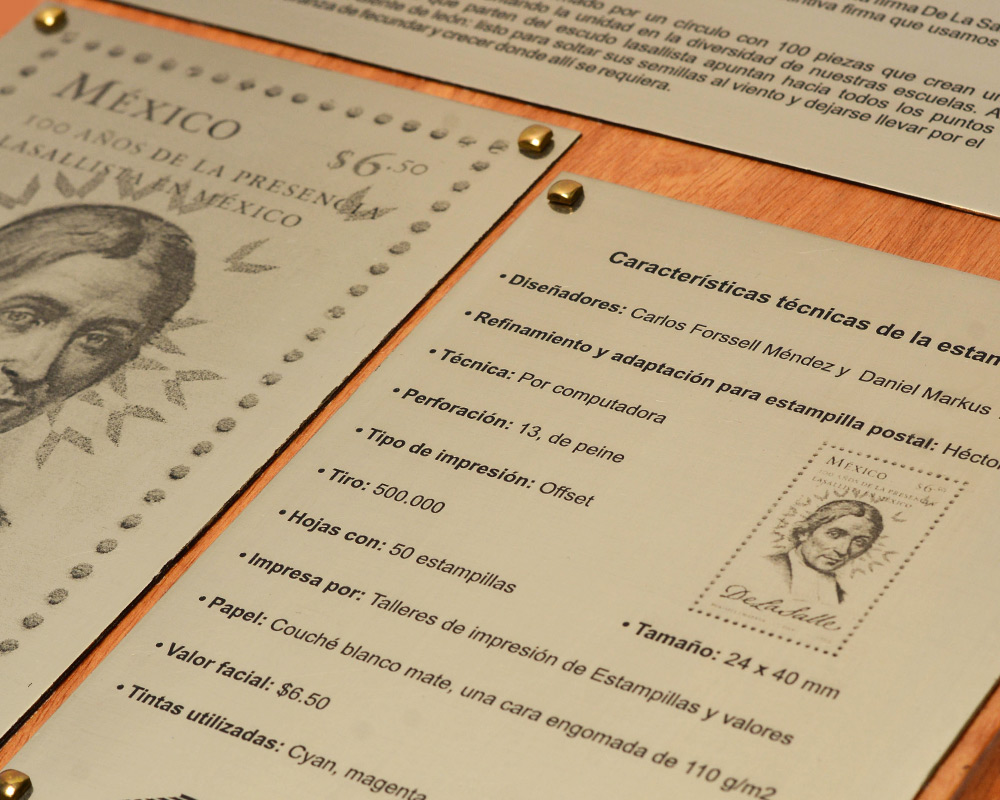 firma De La Sa
nitiva firma que usamos
mado por un círculo con 100 piezas que crean un
mando la unidad en la diversidad de nuestras escuelas. A
que parten del escudo lasallista apuntan hacia todos los puntos
diente de león: listo para soltar sus semillas al viento y dejarse llevar por el
ranza de fecundar y crecer donde allí se requiera.
MÉXICO
$6.50
100 AÑOS DE LA PRESENCIA
LASALLISTA EN MÉXICO
Características técnicas de la estam
• Diseñadores: Carlos Forssell Méndez y Daniel Markus
• Refinamiento y adaptación para estampilla postal: Héctor
• Técnica: Por computadora
• Perforación: 13, de peine
• Tipo de impresión: Offset
• Tiro: 500.000
• Hojas con: 50 estampillas
• Impresa por: Talleres de impresión de Estampillas y valores
• Papel: Couché blanco mate, una cara engomada de 110 g/m2
• Valor facial: $6.50
• Tintas utilizadas: Cyan, magenta
MÉXICO
$6.50
100 AÑOS DE LA PRESENCIA
LASALLISTA EN MÉXICO
De La Salle
• Tamaño: 24 x 40 mm